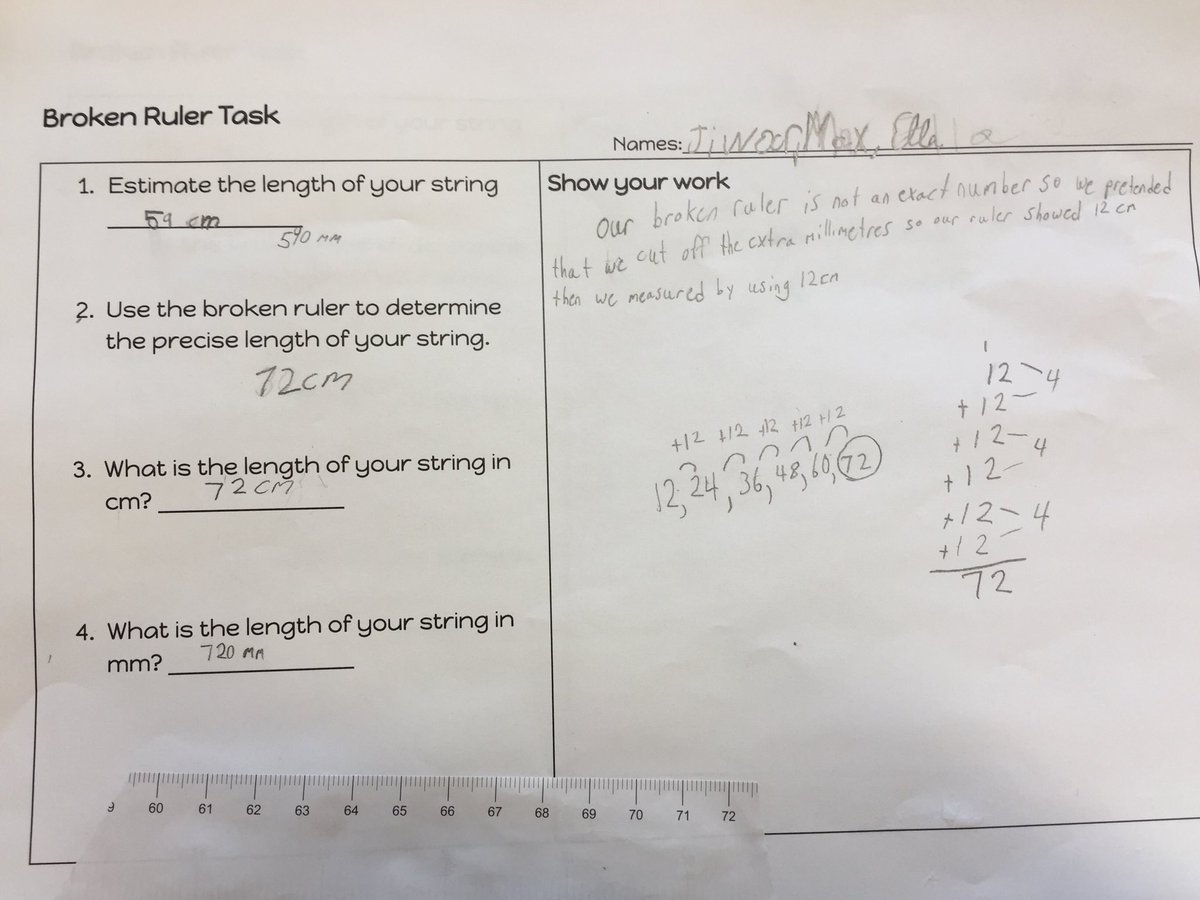 Broken Ruler Task
Names: Max, Ella
1. Estimate the length of your string
59 cm
590 mm
2. Use the broken ruler to determine
the precise length of your string.
72cm
3. What is the length of your string in
cm? 72 cm
4. What is the length of your string in
mm? 720 mm
Show your work
Our broken ruler is not an exact number so we pretended
that we cut off the extra millimetres so our ruler showed 12 cm
then we measured by using 12cm
+12 +12 +12 +12 +12
12, 24, 36, 48, 60, 72
1
12 4
+12
+12 4
+12
+12 4
+12
72
9 60 61 62 63 64 65 66 67 68 69 70 71 72